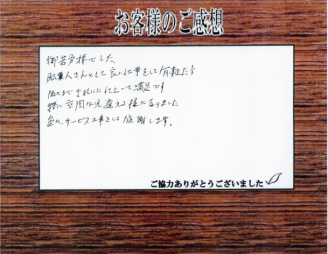 お客様のご感想
御苦労様でした。
職人さんとして良い仕事をして有難う
細かくきれいに仕上って満足です
特に玄関は見違える様になりました
サービス工事をして感謝します。
ご協力ありがとうございました